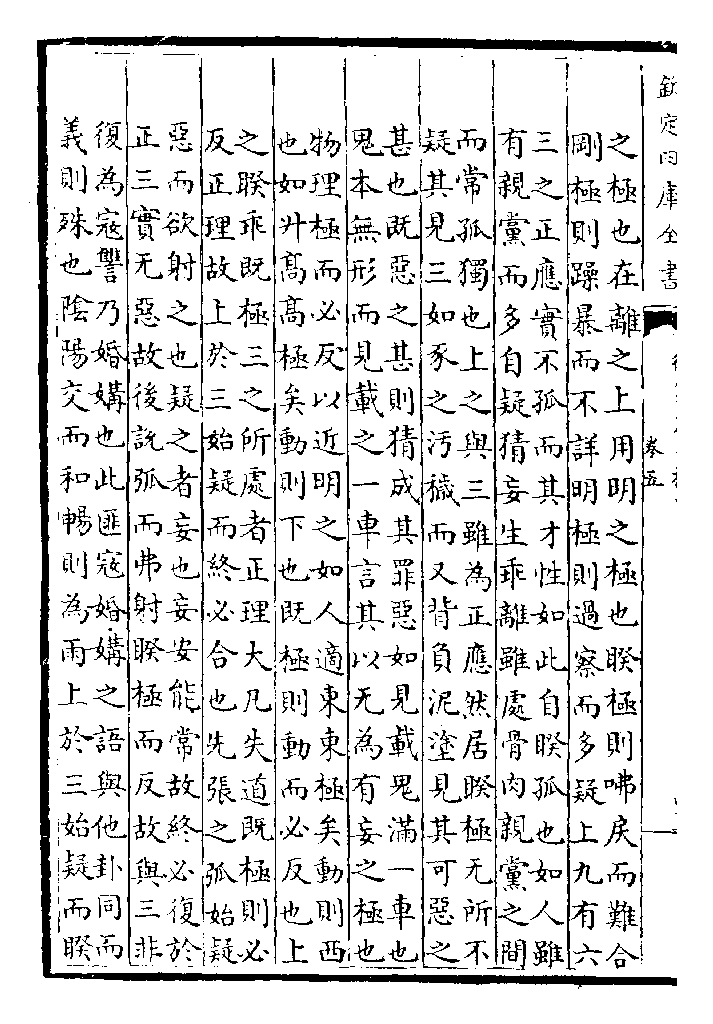 欽定四庫全書
卷五
之極也在離之上用明之極也睽極則咈戾而難合
剛極則躁暴而不詳明極則過察而多疑上九有六
三之正應實不孤而其才性如此自睽孤也如人雖
有親黨而多自疑猜妄生乖離雖處骨肉親黨之間
而常孤獨也上之與三雖為正應然居睽極无所不
疑其見三如豕之污穢而又背負泥塗見其可惡之
甚也既惡之甚則猜成其罪惡如見載鬼滿一車也
鬼本無形而見載之一車言其以无為有妄之極也
物理極而必反以近明之如人適東東極矣動則西
也如升高高極矣動則下也既極則動而必反也上
之睽乖既極三之所處者正理大凡失道既極則必
反正理故上於三始疑而終必合也先張之弧始疑
惡而欲射之也疑之者妄也妄安能常故終必復於
正三實无惡故後說弧而弗射睽極而反故與三非
復為寇讐乃婚媾也此匪寇婚媾之語與他卦同而
義則殊也陰陽交而和暢則為雨上於三始疑而睽